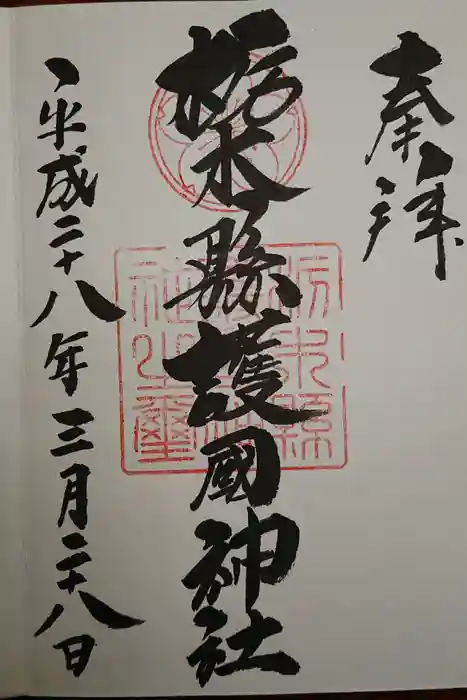 奉拝
栃木縣護國神社
平成二十八年三月二十八日